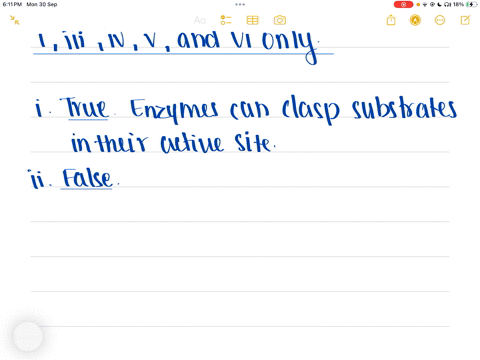 6:11 PM Mon 30 Sep
18%
i, iii, iv, v, and vi only.
i. True. Enzymes can clasp substrates
in their active site.
ii. False.